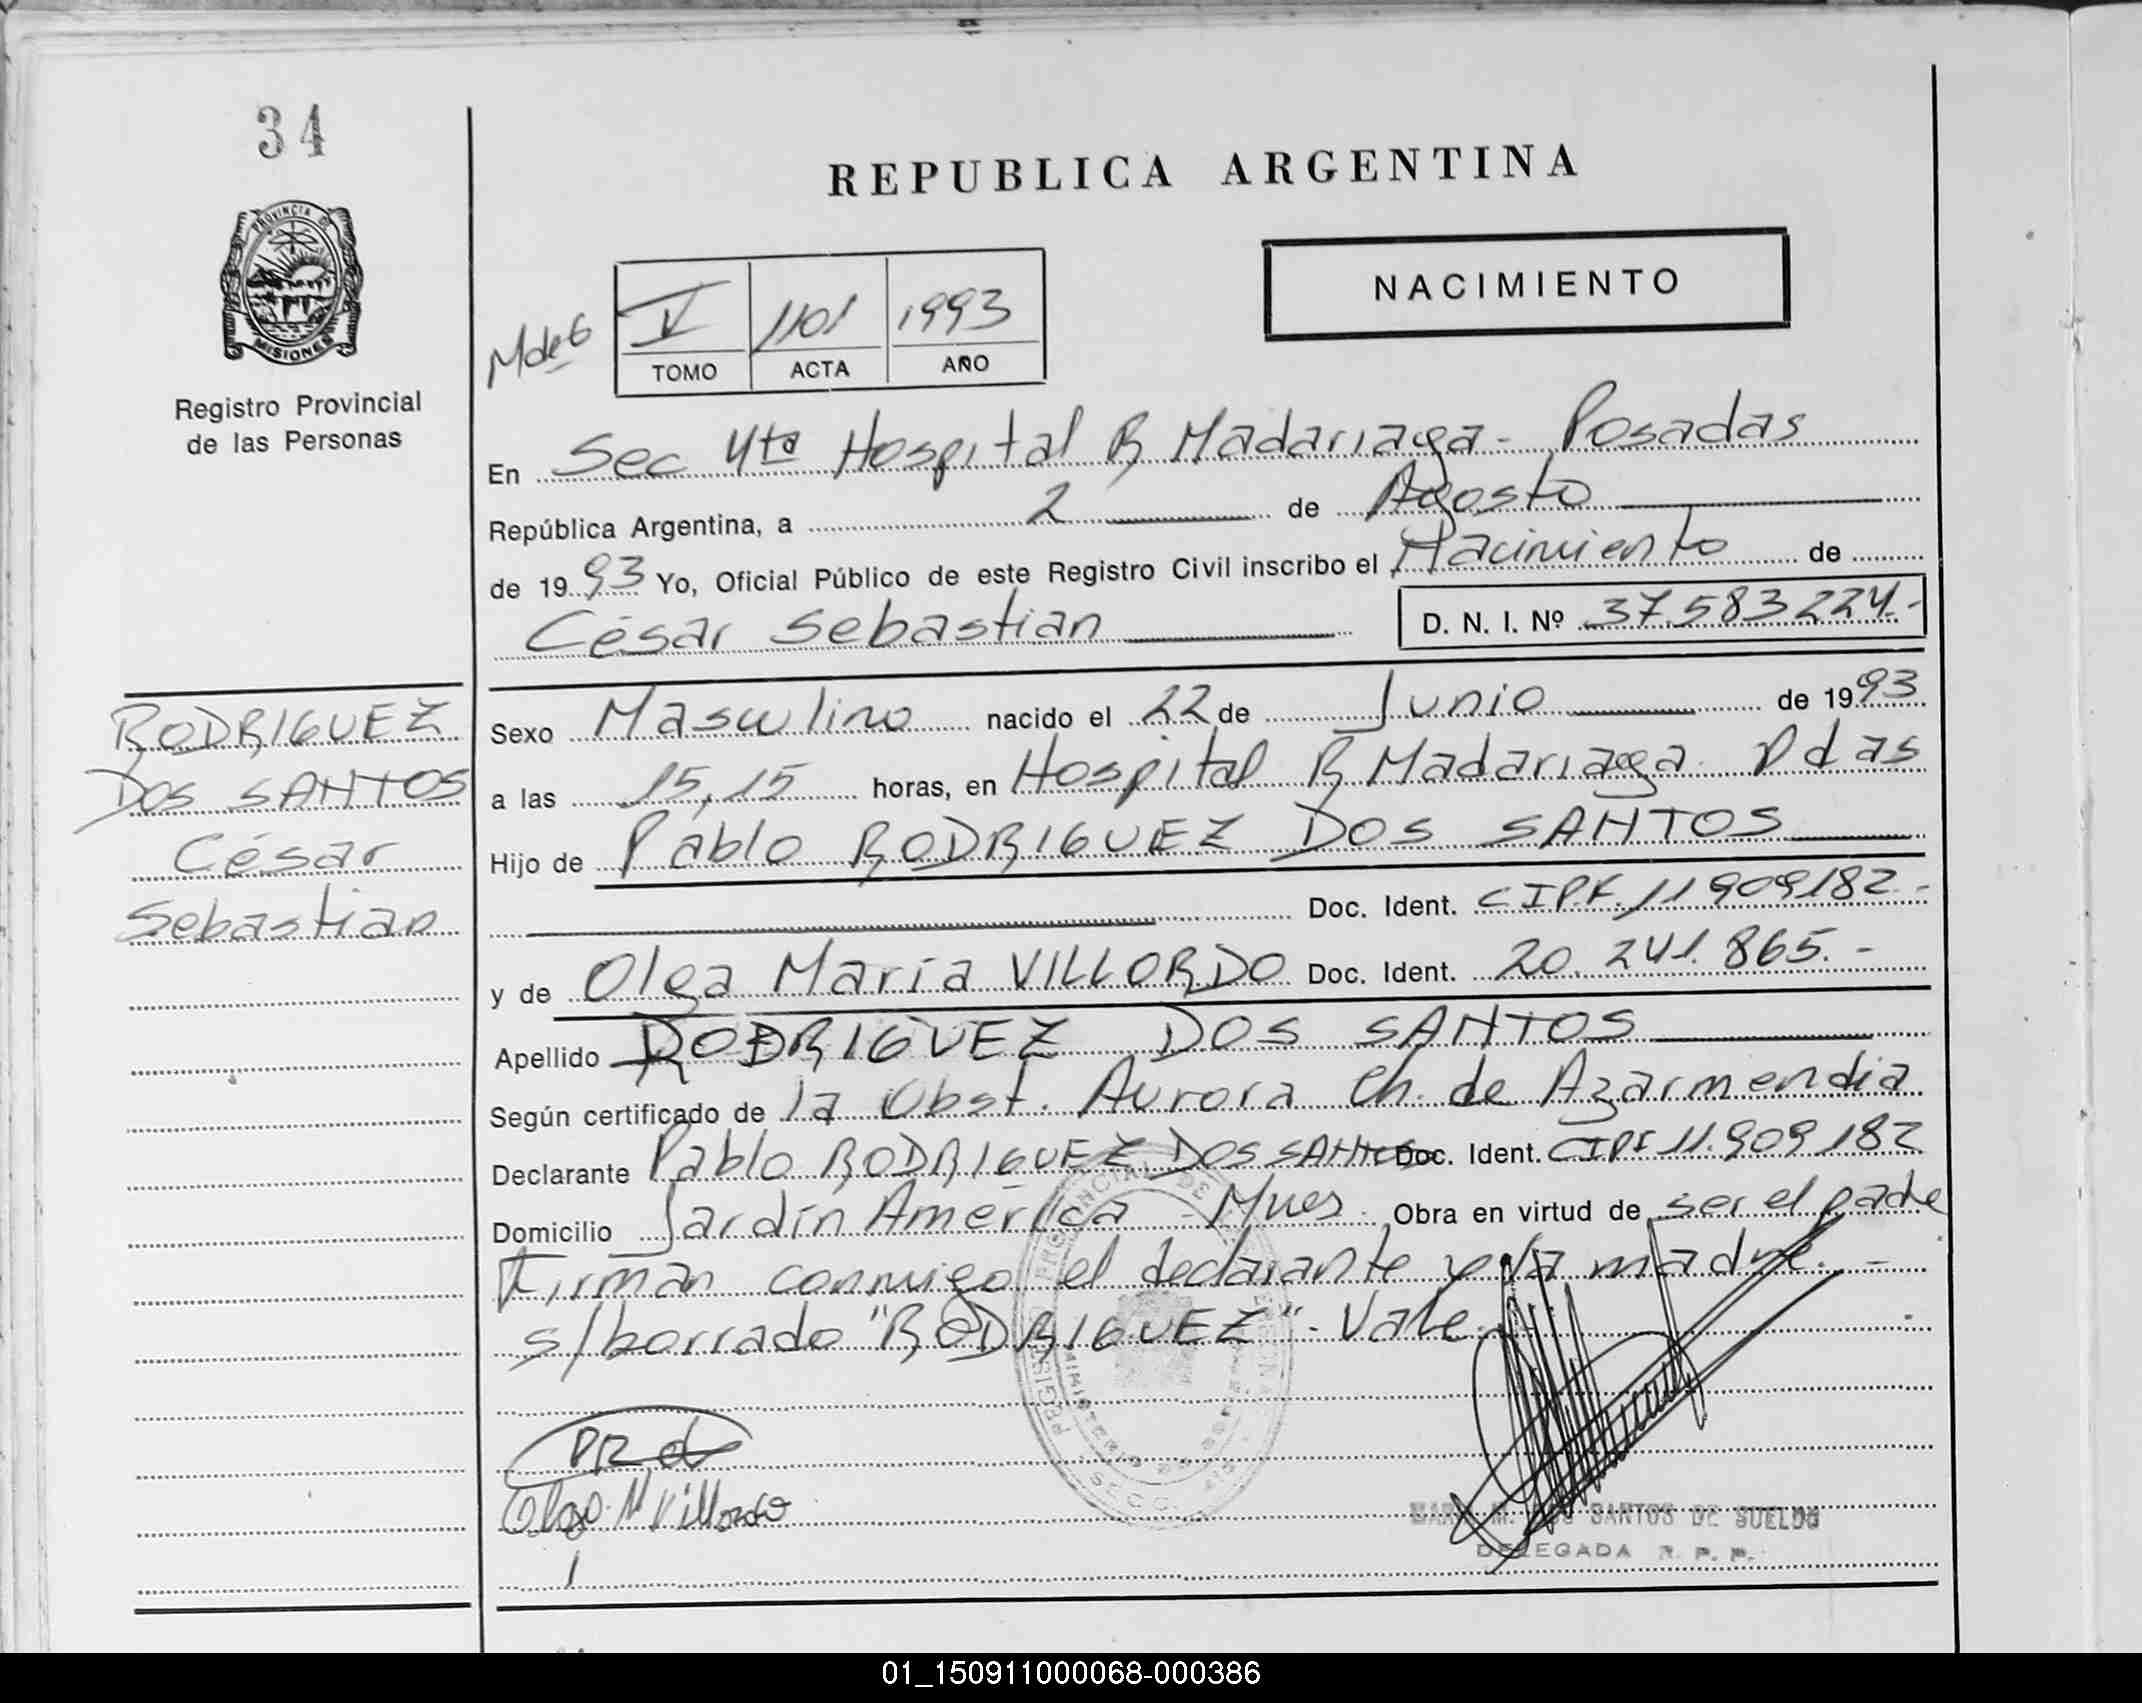 34
REPUBLICA ARGENTINA
PROVINCIA DE
MISIONES
Registro Provincial
de las Personas
NACIMIENTO
V 1101 1993
TOMO ACTA AÑO
En Sec 4ta Hospital R Madariaga - Posadas
República Argentina, a 2 de Agosto
de 1993 Yo, Oficial Público de este Registro Civil inscribo el Nacimiento de
César Sebastian D. N. I. Nº 37.583.224.-
RODRIGUEZ
DOS SANTOS
César
Sebastian
Sexo Masculino nacido el 22 de Junio de 1993
a las 15,15 horas, en Hospital R Madariaga Pdas
Hijo de Pablo RODRIGUEZ DOS SANTOS
Doc. Ident. CIPF. 11909182.-
y de Olga María VILLORDO Doc. Ident. 20.241.865.-
Apellido RODRIGUEZ DOS SANTOS
Según certificado de la Obst. Aurora Ch. de Azarmendia
Declarante Pablo RODRIGUEZ DOS SANTOS Doc. Ident. CIPF 11.909182
Domicilio Jardín América - Mnes. Obra en virtud de ser el padre
Firman conmigo el declarante y la madre.-
s/borrado "RODRIGUEZ". Vale.
PRd
Olga M Villordo
SANTOS DE SUELDO
DELEGADA R. P. P.
01_150911000068-000386